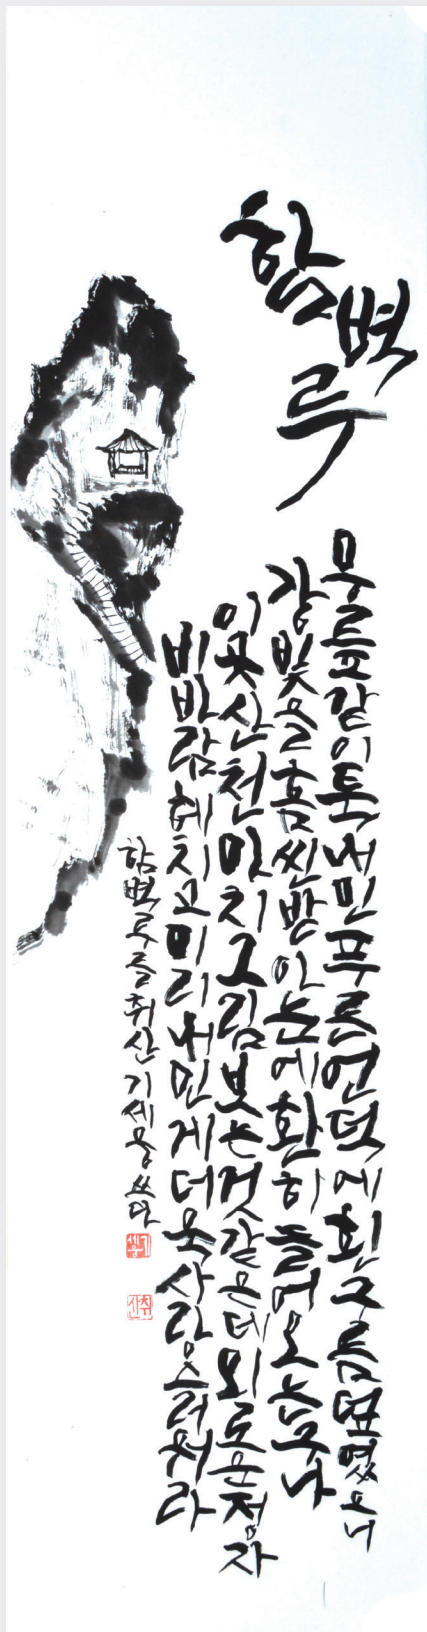 함벽루
무릎같이툭내민푸른언덕에흰구름덮였으니
강빛을흠씬받아눈에환히들어오는구나
이곳산천마치그림보는것같은데외로운정자
비바람헤치고미리내민게더욱사랑스러워라
함벽루를취산기세용쓰다